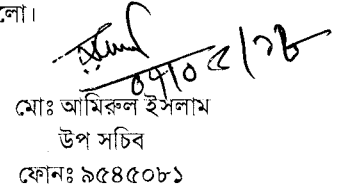 লো।
০৭/০৫/১৮
মোঃ আমিরুল ইসলাম
উপ সচিব
ফোনঃ ৯৫৪৫০৮১